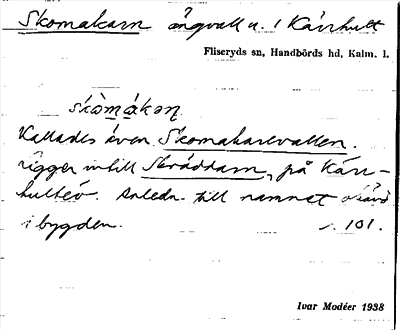 Skomakarn ängvall u. 1 Kärrhult
Fliseryds sn, Handbörds hd, Kalm. l.
skòmákaṇ
Kallades även Skomakarevallen.
Ligger intill Skräddarn, på Kärr-
hultev. Anledn. till namnet okänd
i bygden. s. 101.
Ivar Modéer 1938